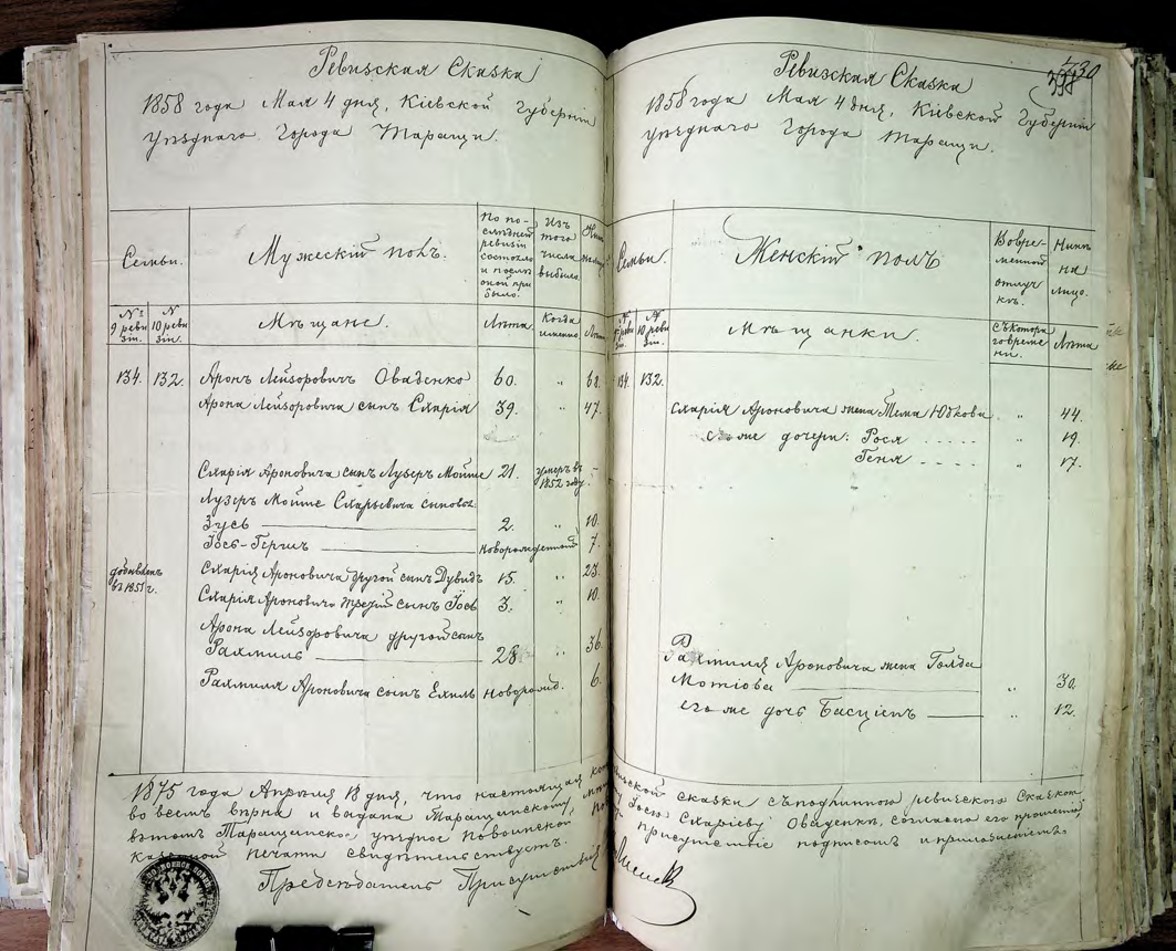 Ревизская Сказка
1858 года Мая 4 дня, Кіевской Губерніи
Уѣзднаго Города Таращи.
Семьи.
Мужескій полъ.
По по-
слѣдней
ревизіи
состояло
и послѣ
оной при
было.
Изъ
того
числа
выбыло.
№
9 реви
зіи.
№
10 реви
зіи.
Мѣщане.
Лѣта.
Когда
именно
Лѣта
134. 132. Аронъ Лейзоровичъ Оваденко 60. „
Арона Лейзоровича сынъ Схарія 39. „ 47.
Схарія Ароновича сынъ Лузеръ Мойше 21. умеръ въ 1852 году. -
Лузеръ Мойше Схарьевича сыновья:
Зусь 2. „ 10.
Іось-Гершъ новорожденный 7.
добавленъ
въ 1851 г.
Схарія Ароновича другой сынъ Дувидъ 15. „ 23.
Схарія Ароновича третій сынъ Іось 3. „ 10.
Арона Лейзоровича другой сынъ
Рахмиль 28 „ 36.
Рахмиля Ароновича сынъ Ехиль новорожд. 6.
1875 года Апрѣля 18 дня, что настоящая
во всемъ вѣрна и выдана Таращанскому
въ томъ Таращанское уѣздное по воинской
казенной печати свидѣтельствуетъ.
Предсѣдатель Присутствія
730
338
Ревизская Сказка
1858 года Мая 4 дня, Кіевской Губерніи
Уѣзднаго Города Таращи.
Семьи.
Женскій полъ
Во вре-
менной
отлуч
кѣ.
Нынѣ
на
лицо.
№
9 реви
зіи.
№
10 реви
зіи.
Мѣщанки.
Съ котора
го време
ни.
Лѣта
134. 132.
Схарія Ароновича жена Тема Юдкова „ 44.
его же дочери: Рося „ 19.
Геня „ 17.
Рахмиля Ароновича жена Голда
Мотіова „ 30.
его же дочь Басціепъ „ 12.
ревизской сказки съ подлинною ревизскою Сказкою
Іосю Схаріеву Оваденкѣ, согласно его прошенію
присутствіе подписомъ и приложеніемъ